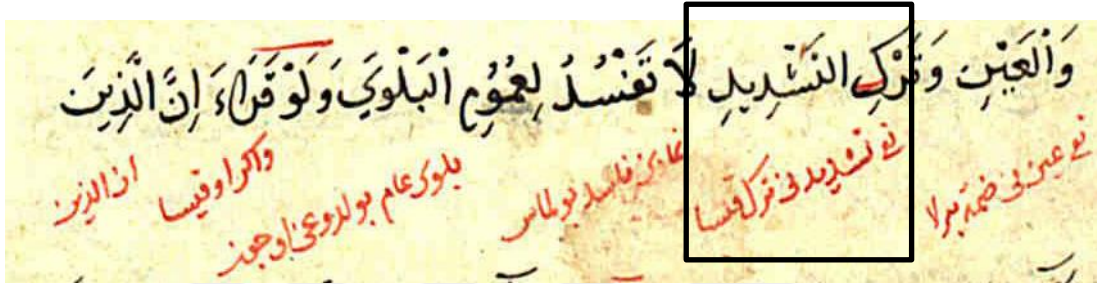 وَالْعَيْنِ وَتَرْكِ التَّشْدِيدِ لَا تَفْسُدُ لِعُمُومِ الْبَلْوَي وَلَوْ قَرَاءَ اِنَّ الَّذِينَ
عين نى ضمه بيرلا تشديد نى ترك قيلسا نمازى فاسد بولماس بلوى عام بولدوغى اوجون واكر اوقيسا ان الذين